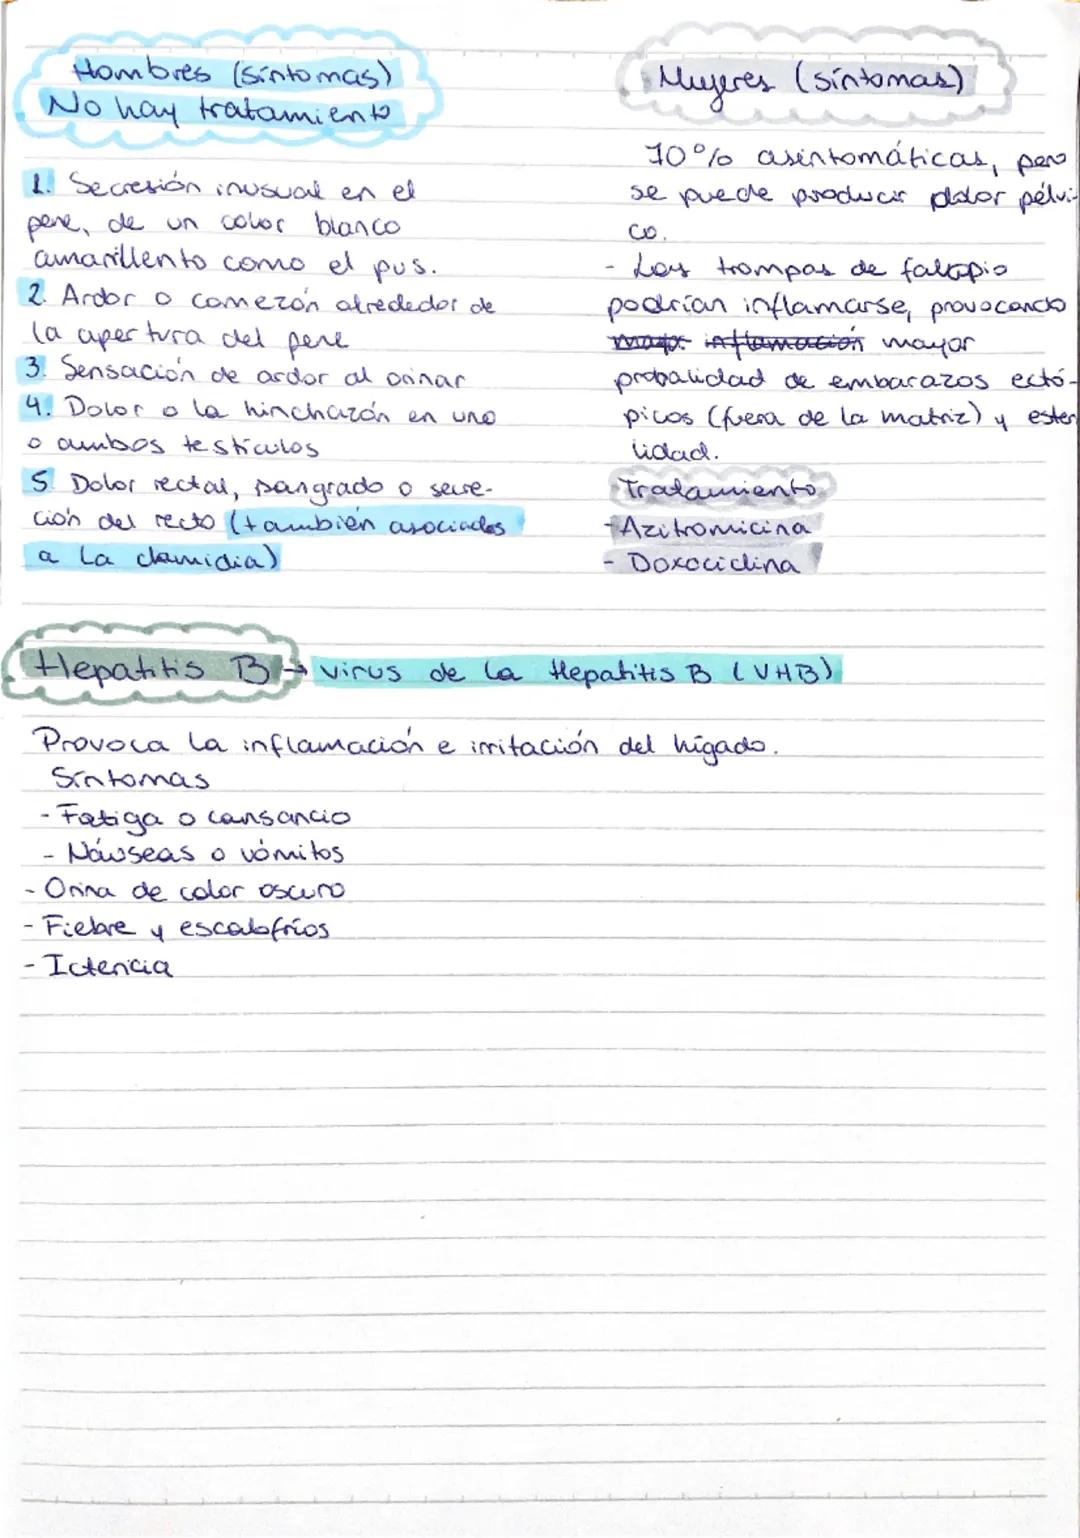 Hombres (síntomas)
No hay tratamiento
1. Secresión inusual en el
pene, de un color blanco
amarillento como el pus.
2. Ardor o comezón alrededor de
la apertura del pene
3. Sensación de ardor al orinar
4. Dolor o la hinchazón en uno
o ambos testículos
5. Dolor rectal, sangrado o secre-
ción del recto (también asociados
a la clamidia)
Mujeres (síntomas)
70% asintomáticas, pero
se puede producir dolor pélvi-
co.
- Las trompas de falopio
podrían inflamarse, provocando
inflamación mayor
probalidad de embarazos ectó-
picos (fuera de la matriz) y esteri
lidad.
Tratamiento
- Azitromicina
- Doxociclina
Hepatitis B → virus de la Hepatitis B (VHB)
Provoca la inflamación e irritación del hígado.
Síntomas
- Fatiga o cansancio
- Náuseas o vómitos
- Orina de color oscuro
- Fiebre y escalofríos
- Ictericia